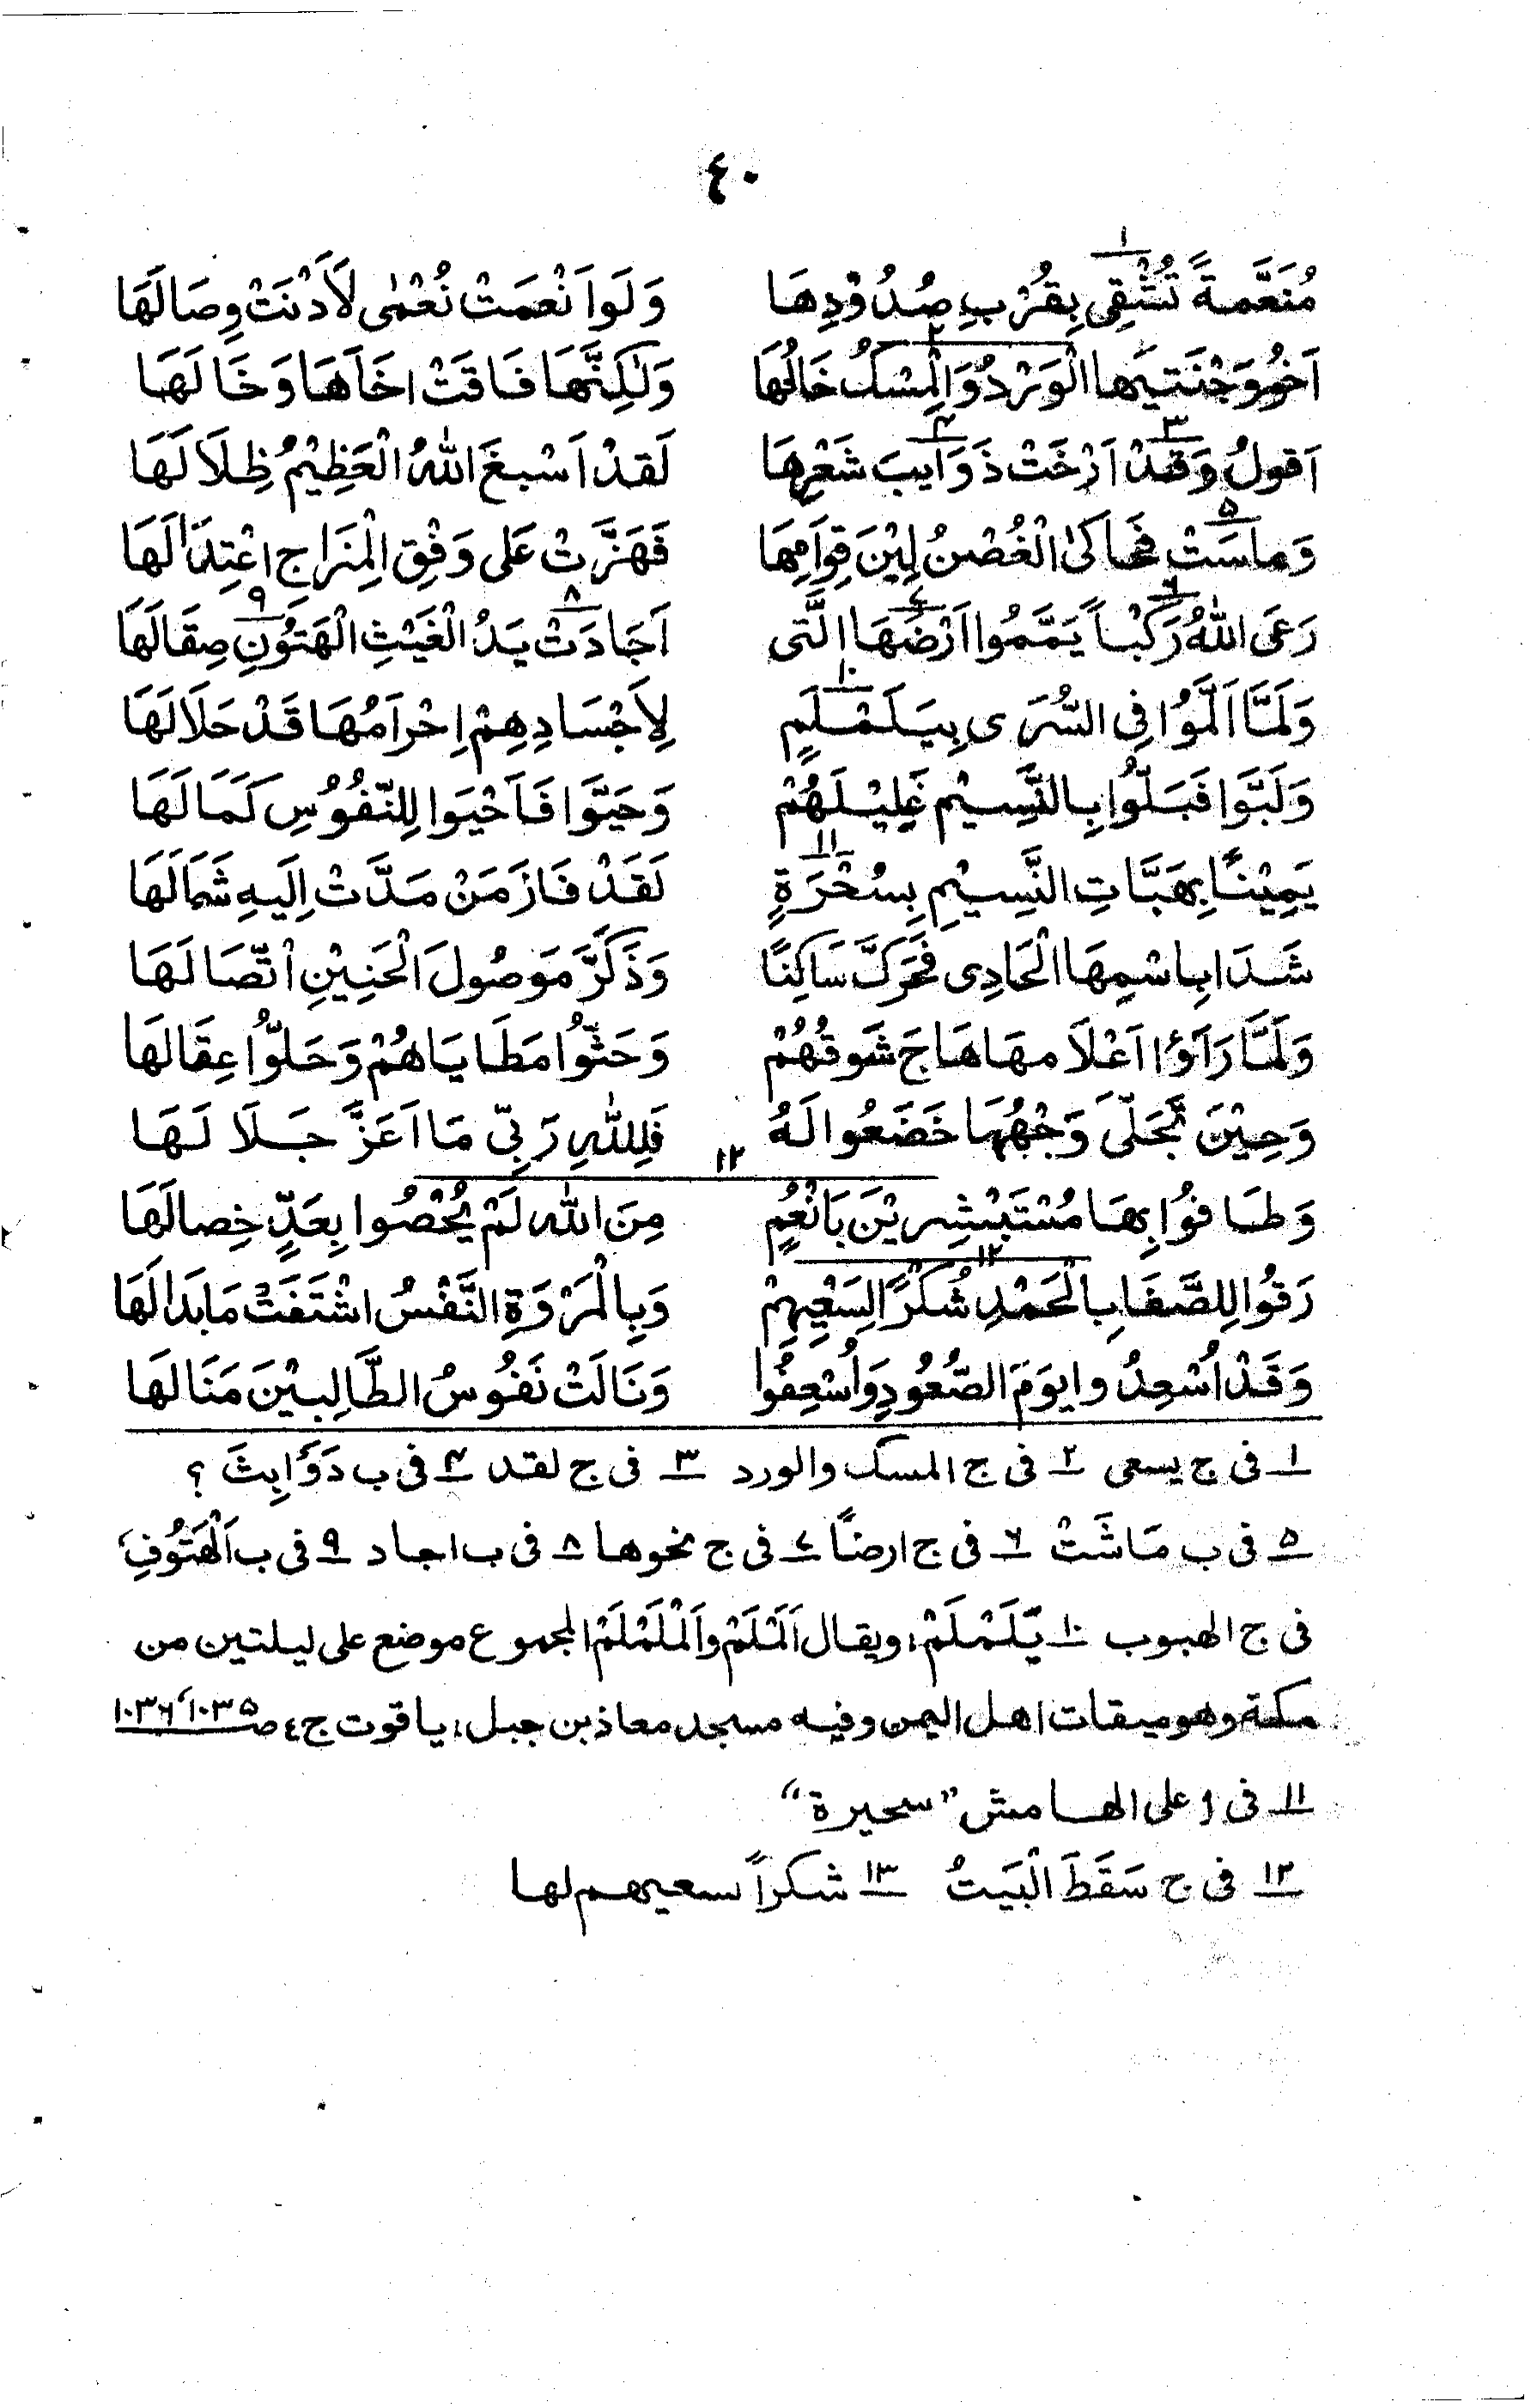 ٤٠
١
مُنَعَّمةً تُشْقِى بِقُرْبِ صُدُوْدِهَا وَلَوا َنْعَمَتْ نُعْمٰى لَاَدْنَتْ وِصَالَهَا
٢
اَخُو وَجْنَتيَها الْوَرْدُ وَالْمِسْكُ خَالُهَا وَلٰكِنَّهَا فَاقَتْ اخَاهَا وَخَالَهَا
٣ ٤
اَقولُ وَقَدْ اَرْخَتْ ذَوَايبَ شَعْرِهَا لَقدْ اَسْبغَ اللهُ الْعَظِيْمُ ظِلَالَهَا
٥
وَماسَتْ فحَاكىٰ الْغُصْنُ لِيْنَ قِوامِهَا فَهَزَّتْ عَلى وَفْقِ الْمِزَاجِ اعْتِدَالَهَا
٦ ٧ ٨ ٩
رَعَى اللهُ رَكْباً يَمَّمُوا اَرْضَهَا الَّتى اَجَادَتْ يَدُ الْغَيْثِ الْهَتُوْنِ صِقَالَهَا
١٠
وَلَمَّا اَلَمَّوُا فِى السُّرَى بِيَلَمْلَمٍ لِاَجْسَادِهِمْ اِحْرَامُهَا قَدْ حَلَا لَهَا
وَلَبَّوَا فَبَلّوُا بِالنَّسِيْمِ غَلِيْلَهُمْ وَحَيَّوَا فَاَحْيَوا لِلنّفُوُسِ كَمَالَهَا
١١
يَمِيْنًا بِهَبَّاتِ النَّسِيْمِ بِسُحْرَةٍ لَقَدْ فَازَ مَنْ مَدَّتْ اِلَيهِ شَمَالَهَا
شَدَا بِاسْمِهَا الْحَادِى فَحَرَكَّ سَاكِنًا وَذَكَرَّ مَوصُولَ الْحَنِيْنِ اتّصَالَهَا
وَلَمَّا رَاَوْا اَعْلَامهَا هَاجَ شَوقُهُمْ وَحَثّوُا مَطَايَاهُمْ وَحَلّوُا عِقَالَهَا
وَحِيْنَ تَجَلّىَ وَجْهُهَا خَضَعُوا لَهُ فَلِلّٰهِ رَبِّى مَا اَعَزَّ جَلَالَهَا
١٢
وَطَافوُا بِهَا مُسْتَبْشِرِيْنَ بَانْعُمٍ مِنَ الله لَمْ يُحْصُوا بِعَدٍّ خِصالَهَا
١٣
رَقوُا لِلصَّفَا بِالْحَمْدِ شُكْرًا لِسَعْيِهِمْ وَبِالْمَرْوَةِ النَّفْسُ اشْتَفَتْ مَابَدَا لَهَا
وَقَدْ اُسْعِدُوا يوَمَ الصُّعُودِ وَاُسْعِفُوا وَنَالَتْ نَفُوسُ الطَّالِبيْنَ مَنَالهَا
١ فى ج يسعى ٢ فى ج المسك والورد ٣ فى ج لقد ٤ فى ب دَوَابِثَ ؟
٥ فى ب مَاشَتْ ٦ فى ج ارضًا ٧ فى ج نحوها ٨ فى ب اجاد ٩ فى ب اَلْهَتُوْفِ،
فى ج الهبوب ١٠ يَلَمْلَمْ؛ ويقال اَلَمْلَمْ والْمْلَمْلَمْ المجموع موضع على ليلتين من
مكة وهو ميقات اهل اليمن وفيه مسجد معاذ بن جبل؛ ياقوت ج٤ ص١٠٣٥، ١٠٣٦
١١ فى أ على الهامش ”سحيرة“
١٢ فى ج سَقَطَ الْبَيَتُ ١٣ شكراً سعيهم لها